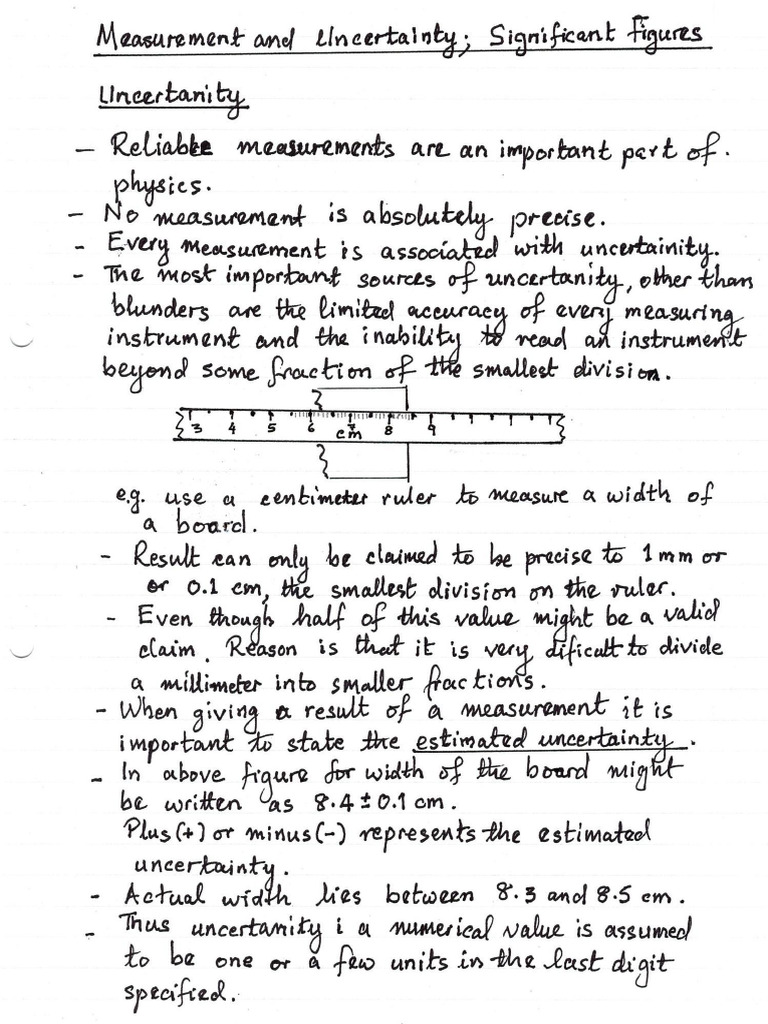 Measurement and Uncertainty; Significant Figures
Uncertanity
- Reliable measurements are an important part of.
physics.
- No measurement is absolutely precise.
- Every measurement is associated with uncertainity.
- The most important sources of uncertanity, other than
blunders are the limited accuracy of every measuring
instrument and the inability to read an instrument
beyond some fraction of the smallest division.
3 4 5 6 7 8 9
cm
e.g. use a centimeter ruler to measure a width of
a board.
- Result can only be claimed to be precise to 1mm or
or 0.1 cm, the smallest division on the ruler.
- Even though half of this value might be a valid
claim. Reason is that it is very dificult to divide
a millimeter into smaller fractions.
- When giving a result of a measurement it is
important to state the estimated uncertainty.
- In above figure for width of the board might
be written as 8.4 ± 0.1 cm.
Plus (+) or minus (-) represents the estimated
uncertainty.
- Actual width lies between 8.3 and 8.5 cm.
- Thus uncertanity i a numerical value is assumed
to be one or a few units in the last digit
specified.